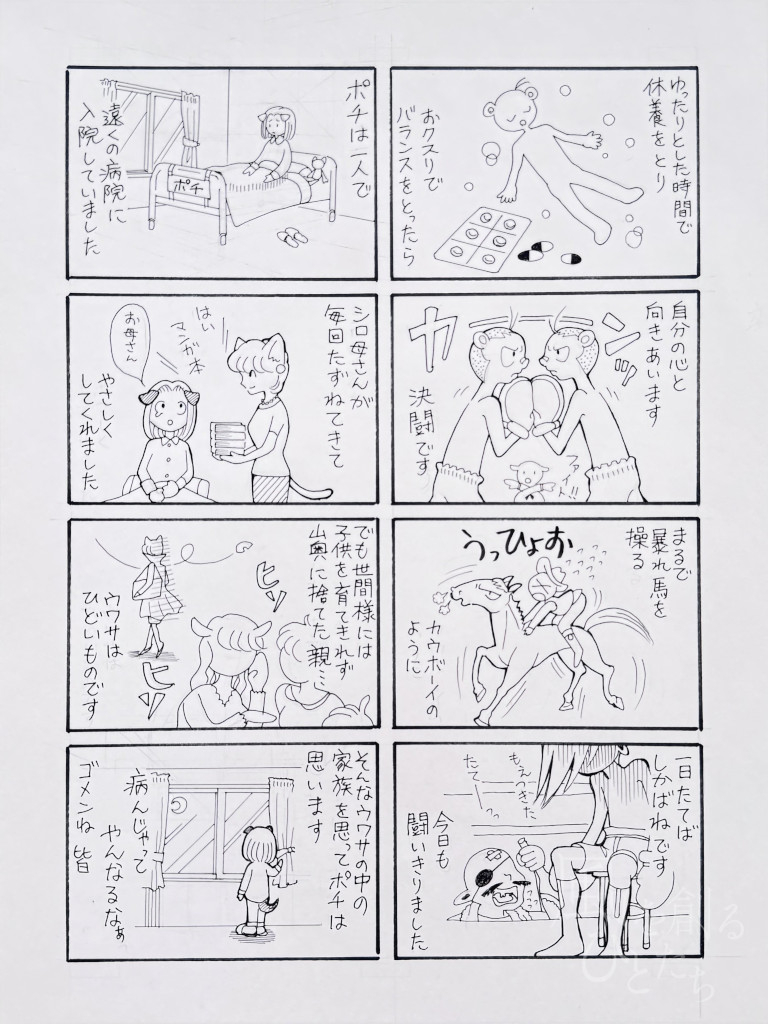 ゆったりとした時間で
休養をとり
おクスリで
バランスをとったら
自分の心と
向きあいます
カ
ンッ
決闘です
ファイト!!
まるで
暴れ馬を
操る
うっひょお
カウボーイの
ように
一日たてば
しかばねです
もえつきた
たて…っ
今日も
闘いきりました
ポチは一人で
ポチ
遠くの病院に
入院していました
シロ母さんが
毎回たずねてきて
はい
マンガ本
お母さん
やさしく
してくれました
でも世間様には
子供を育てきれず
山奥に捨てた親…
ヒソ
ヒソ
ウワサは
ひどいものです
そんなウワサの中の
家族を思ってポチは
思います
病んじゃって
やんなるなぁ
ゴメンね 皆
創る
ひとたち